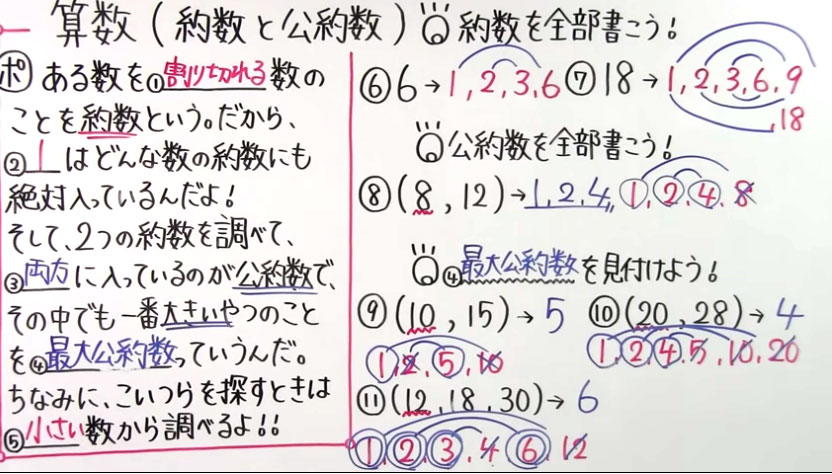 算数(約数と公約数)
ポ ある数を①割り切れる数の
ことを約数という。だから、
②1はどんな数の約数にも
絶対入っているんだよ!
そして、2つの約数を調べて、
③両方に入っているのが公約数で、
その中でも一番大きいやつのこと
を④最大公約数っていうんだ。
ちなみに、こいつらを探すときは
⑤小さい数から調べるよ!!
約数を全部書こう!
⑥6→1,2,3,6 ⑦18→1,2,3,6,9
,18
公約数を全部書こう!
⑧(8,12)→1,2,4 1,2,4,8
④最大公約数を見付けよう!
⑨(10,15)→5 ⑩(20,28)→4
1,2,5,10 1,2,4,5,10,20
⑪(12,18,30)→6
1,2,3,4,6,12